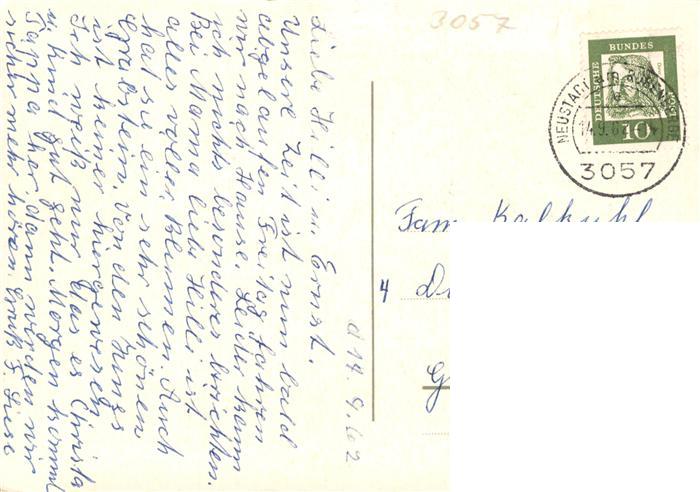 3057
DEUTSCHE
BUNDES
POST
10
NEUSTADT
14.9.62
3057
Liebe Hilli u. Ernst.
Unsere Zeit ist nun bald
abgelaufen Freitag fahren
wir nach Hause. Leider kann
ich nichts besonderes berichten.
Bei Mama liebe Hilli ist
alles voller Blumen. Auch
hat sie ein sehr schönen
Grabstein. Von den Jungs
ist keiner hiergewesen
Ich weiß nur das es Christa
u. Kind gut geht. Morgen kommt
Pappa her, dann werden wir
sicher mehr hören. Gruß
d 14. 9. 62
Fam. Kalkuhl
4 Dü
G